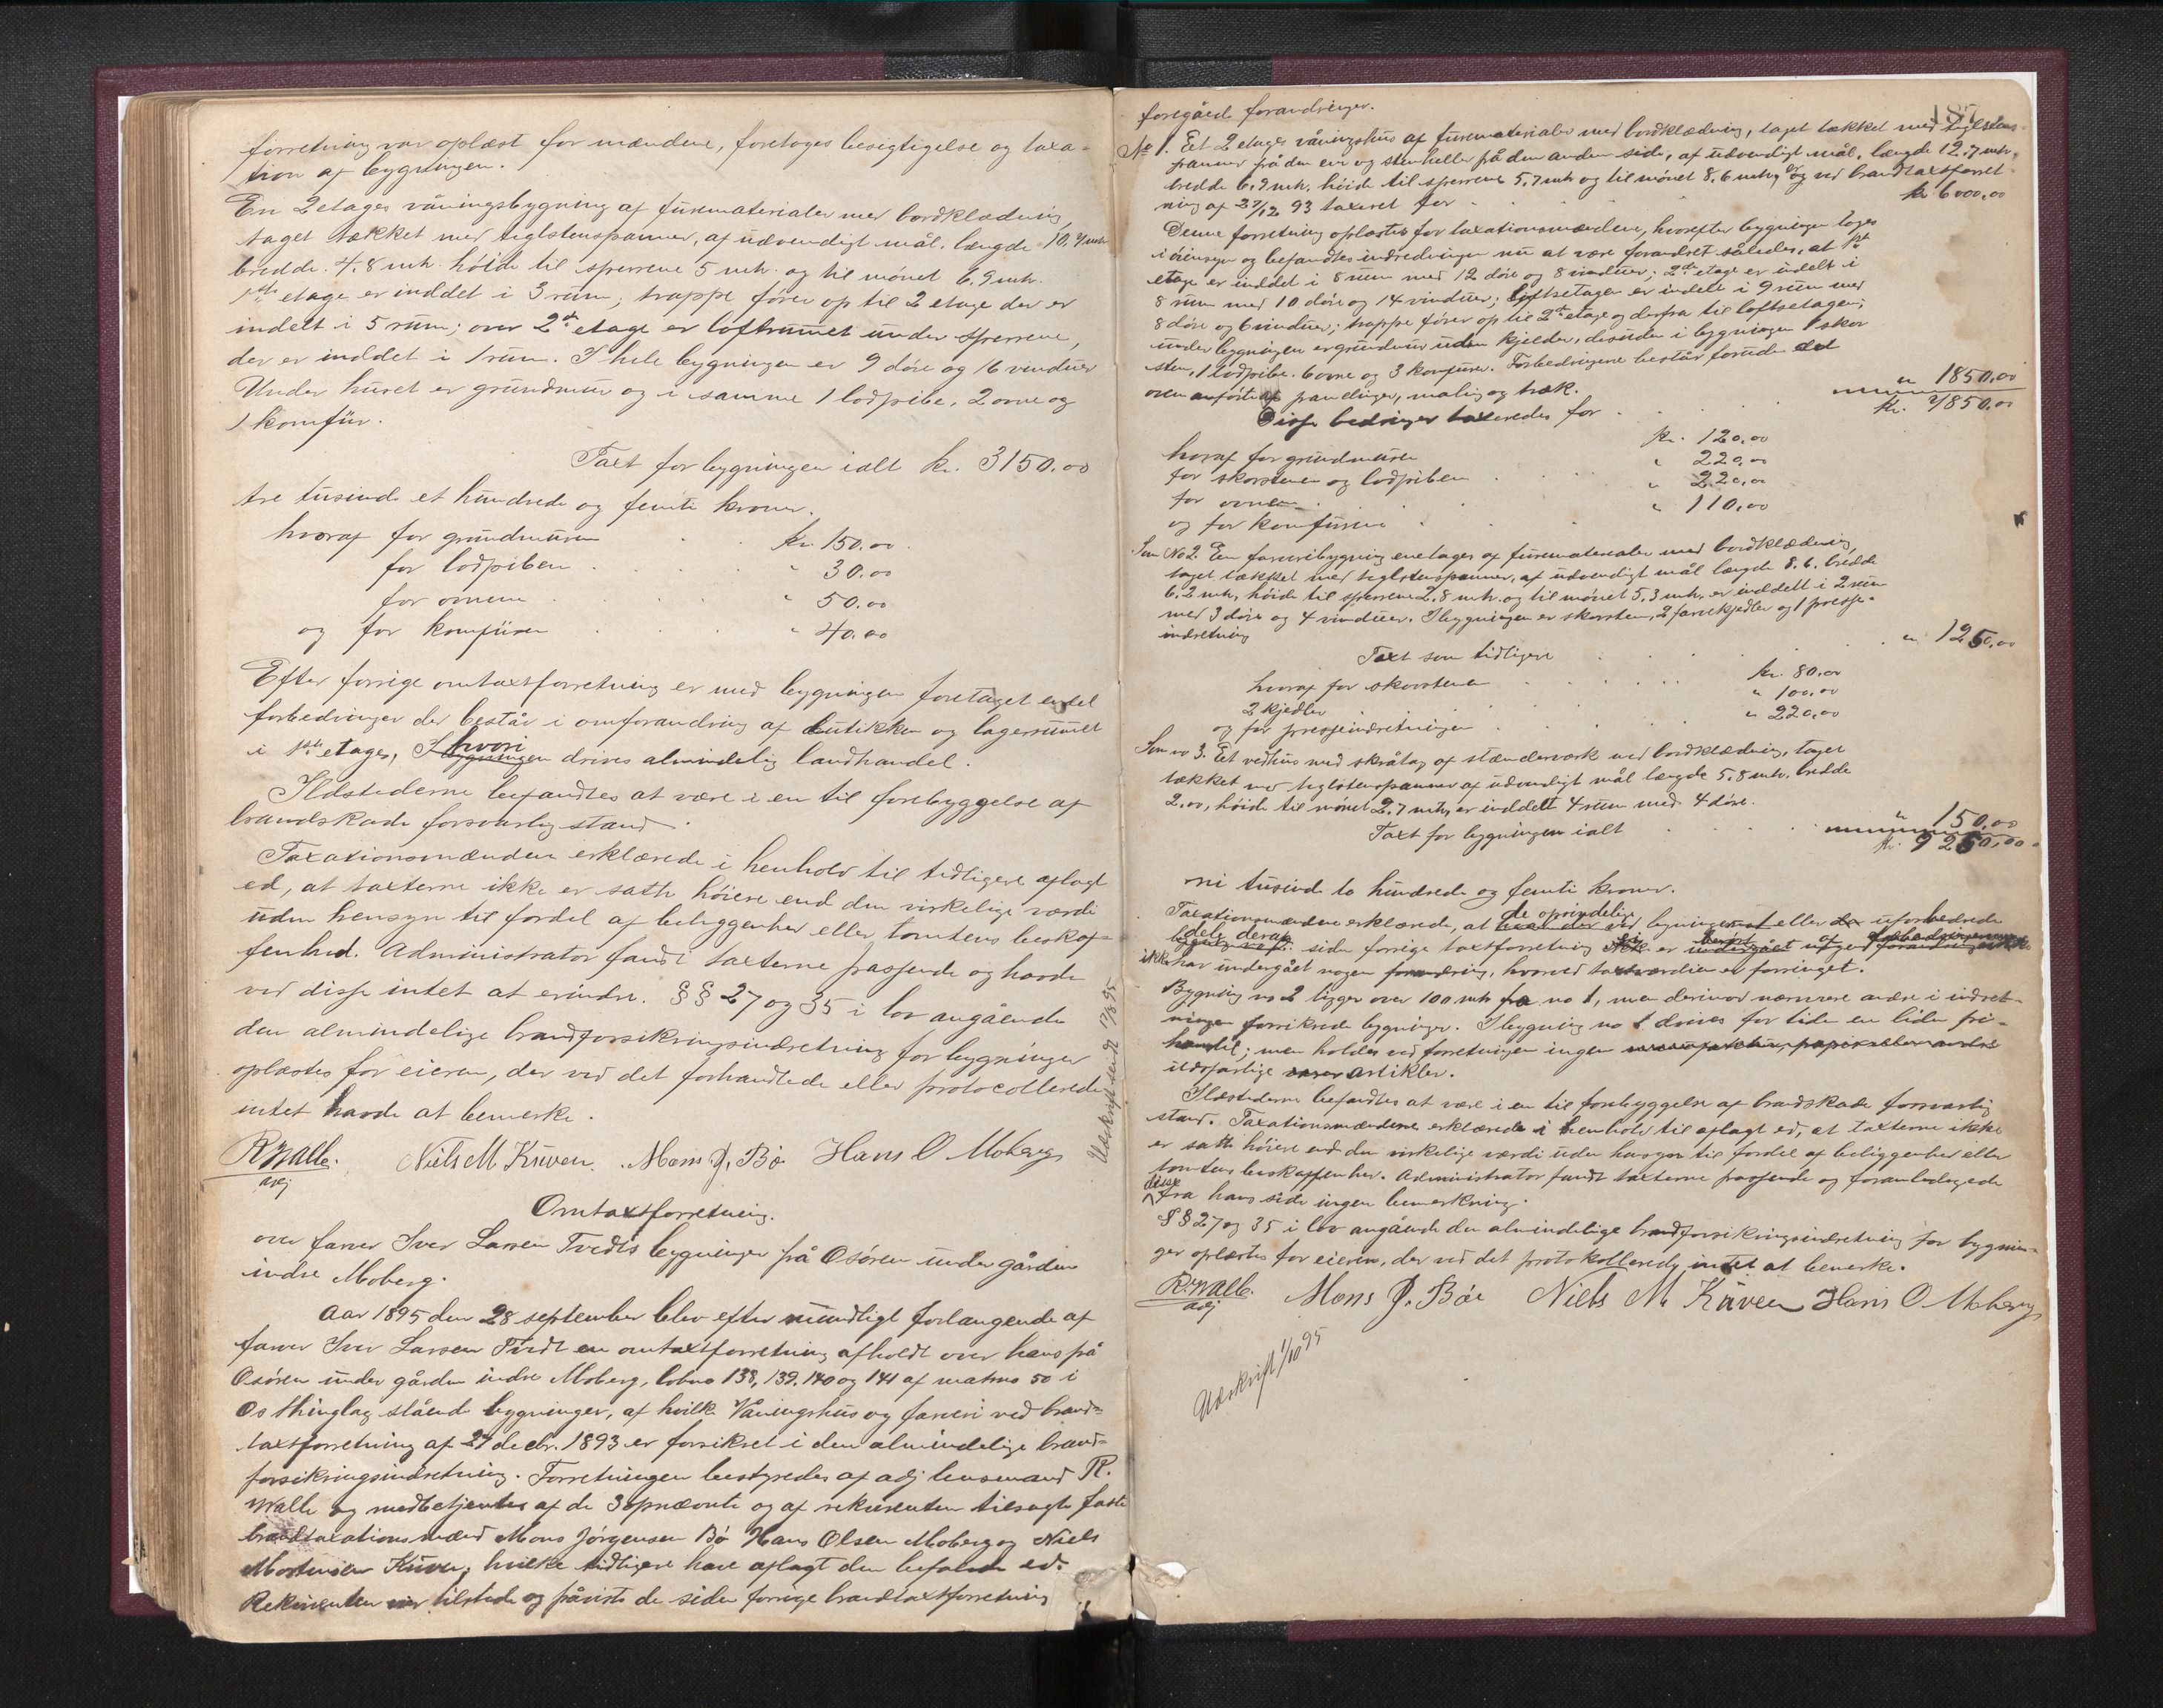 forretning var oplæst for mændene, foretoges besigtigelse og taxa-
tion af bygningen.
En 2 etages våningsbygning af furumaterialer med bordklædning,
taget tækket med teglstenspanner, af udvendigt mål, længde 10,4 mtr.
bredde. 4.8 mtr. høide til sperrene 5 mtr. og til mønet 6.9 mtr.
1ste etage er inddelt i 3 rum; trappe fører op til 2 etage der er
indelt i 5 rum; over 2den etage er loftrummet under sperrene,
der er inddelt i 1 rum. I hele bygningen er 9 døre og 16 vinduer
Under huset er grundmur og i samme 1 lodpibe, 2 ovne og
1 komfür.
Taxt for bygningen ialt kr. 3150.00
tre tusinde et hundrede og femti kroner.
hvoraf for grundmuren kr. 150.00
for lodpiben " 30.00
for ovnene " 50.00
og for komfüren " 40.00
Efter forrige omtaxtforretning er med bygningen foretaget endel
forbedringer der består i omforandring af butikken og lagerrummet
i 1ste etage, hvori drives almindelig landhandel.
Ildstederne befandtes at være i en til forebyggelse af
brandskade forsvarlig stand.
Taxationsmændene erklærede i henhold til tidligere aflagt
ed, at taxterne ikke er satte høiere end den virkelige værdi
uden hensyn til fordel af beliggenhed eller tomtens beskaf-
fenhed. Administrator fandt taxterne passende og havde
ved disse intet at erindre. §§ 27 og 35 i lov angående
den almindelige brandforsikringsindretning for bygninger
oplæstes for eieren, der ved det forhandlede eller protocollerede
intet havde at bemerke.
R Walle. Niels M Kuven. Mons J. Bø Hans O Moberg
adj
Udskrift sendt 17/8 95
Omtaxtforretning.
over farver Iver Larsen Tvedts bygninger på Osøren under gården
indre Moberg.
Aar 1895 den 28 september blev efter mundtligt forlangende af
farver Iver Larsen Tvedt en omtaxtforretning afholdt over hans på
Osøren under gården indre Moberg, løbno 138, 139, 140 og 141 af matrno 50 i
Os thinglag stående bygninger, af hvilke Våningshus og farveri ved brand-
taxtforretning af 27 decbr. 1893 er forsikret i den almindelige brand-
forsikringsindretning. Forretningen bestyredes af adj lensmand R.
Walle og medbetjentes af de 3 opnævnte og af rekvirenten tilsagte faste
brandtaxationsmænd Mons Jörgensen Bø Hans Olsen Moberg og Niels
Mortensen Kuven, hvilke tidligere have aflagt den befalede ed.
Rekvirenten var tilstede og påviste de siden forrige brandtaxtforretning
187
foregåede forandringer.
No 1. Et 2 etages våningshus af furumaterialer med bordklædning, taget tækket med teglstens-
panner på den ene og stenheller på den anden side, af udvendigt mål, længde 12.7 mtr,
bredde 6.9 mtr. høide til sperrene 5,7 mtr og til mønet 8,6 mtr, og ved brandtaxtforret-
ning af 27/12 93 taxeret for kr 6000,00
Denne forretning oplæstes for taxationsmændene, hvorefter bygningen toges
i øiensyn og befandtes indredningen nu at være forandret således, at 1ste
etage er inddelt i 8 rum med 12 døre og 8 vinduer; 2den etage er indelt i
8 rum med 10 døre og 14 vinduer; loftsetagen er indelt i 9 rum med
8 døre og 6 vinduer; trappe fører op til 2den etage og derfra til loftsetagen;
under bygningen er grundmur uden kjelder, desuden i bygningen 1 skor
sten, 1 lodpibe. 6 ovne og 3 komfurer. Forbedringerne består foruden det
oven anførte af panelinger, maling og træk.
Disse bedringer taxeredes for " 1850.00
kr. 7850.00
hvoraf for grundmuren kr. 120,00
for skorstenen og lodpiben " 220,00
for ovnene " 220,00
og for komfurene " 110,00
Som No 2. En farveribygning en etages af furumaterialer med bordklædning,
taget tækket med teglstenspanner, af udvendigt mål længde 8.6. bredde
6.2 mtr, høide til sperrene 2.8 mtr. og til mønet 5,3 mtr, er inddelt i 2 rum
med 3 døre og 4 vinduer. I bygningen er skorsten, 2 farvekjedler og 1 presse-
indretning
Taxt som tidligere " 1250,00
hvoraf for skorstenen kr. 80.00
2 kjedler " 100.00
og for presseindretningen " 220,00
Som no 3. Et vedhus med skråtag af stænderværk med bordklædning, taget
tækket med teglstenspanner af udvendigt mål længde 5.8 mtr. bredde
2,00, høide til mønet 2.7 mtr, er inddelt 4 rum med 4 døre.
Taxt for bygningen ialt " 150,00
kr. 9250,00.
ni tusinde to hundrede og femti kroner.
Taxationsmændene erklærede, at de oprindelige bygninger eller uforbedrede
dele deraf siden forrige taxtforretning
ikke har undergået nogen forandring, hvorved taxtværdien er forringet.
Bygning no 2 ligger over 100 mtr fra no 1, men derimod nærmere andre i indret-
ningen forsikrede bygninger. I bygning no 1 drives for tiden en liden fri-
handel; men holdes ved forretningen ingen
ildsfarlige artikler.
Ildstederne befandtes at være i en til forebyggelse af brandskade forsvarlig
stand. Taxationsmændene erklærede i henhold til aflagt ed, at taxterne ikke
er satte høiere end den virkelige værdi uden hensyn til fordel af beliggenhed eller
tomtens beskaffenhed. Administrator fandt taxterne passende og foranledigede
disse fra hans side ingen bemerkning.
§§ 27 og 35 i lov angående den almindelige brandforsikringsindretning for bygnin-
ger oplæstes for eieren, der ved det protokollerede intet at bemerke.
R. Walle. Mons J. Bø Niels M. Kuven Hans O Moberg
adj
Udskrift 1/10 95